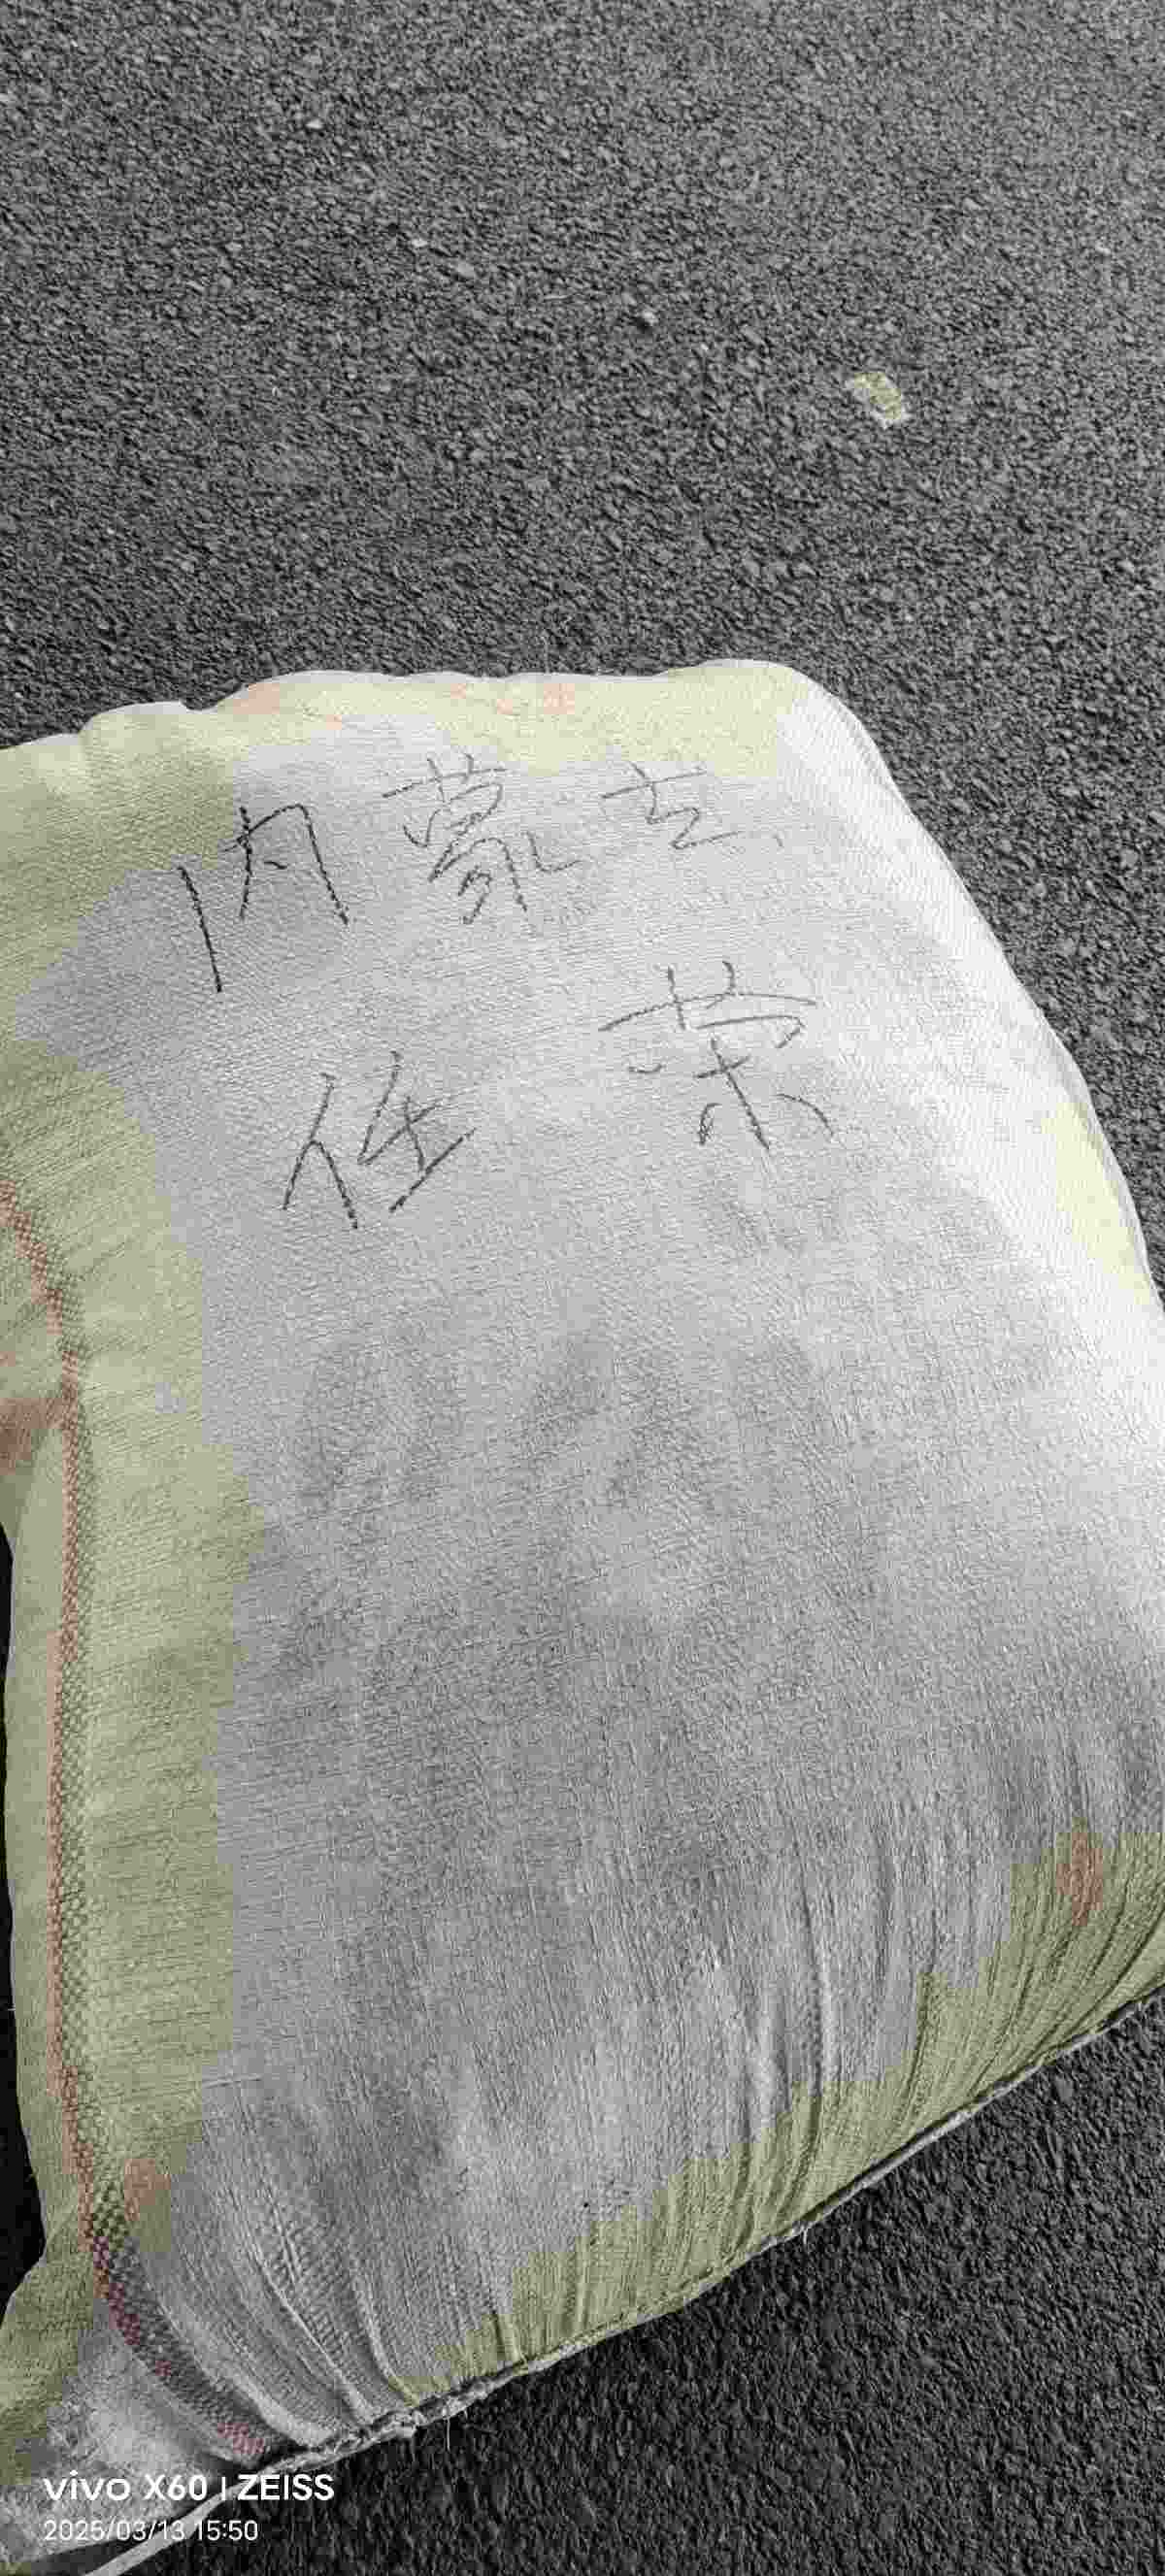 内蒙古
任 荣
vivo X60 | ZEISS
2025/03/13 15:50